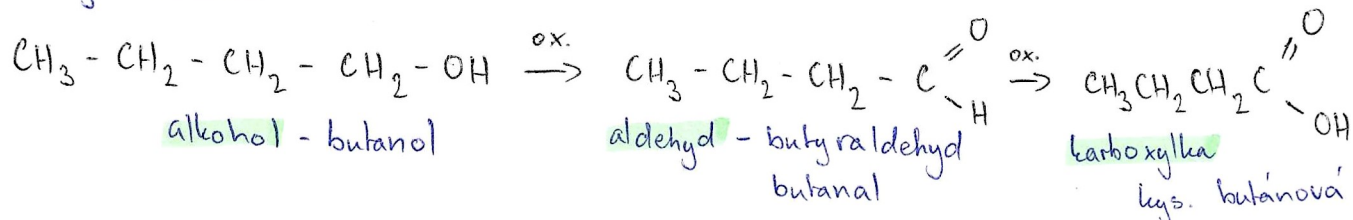 CH₃ - CH₂ - CH₂ - CH₂ - OH ox. → CH₃ - CH₂ - CH₂ - C =O - H ox. → CH₃CH₂CH₂C =O - OH
alkohol - butanol aldehyd - butyraldehyd karboxylka
butanal kys. butánová